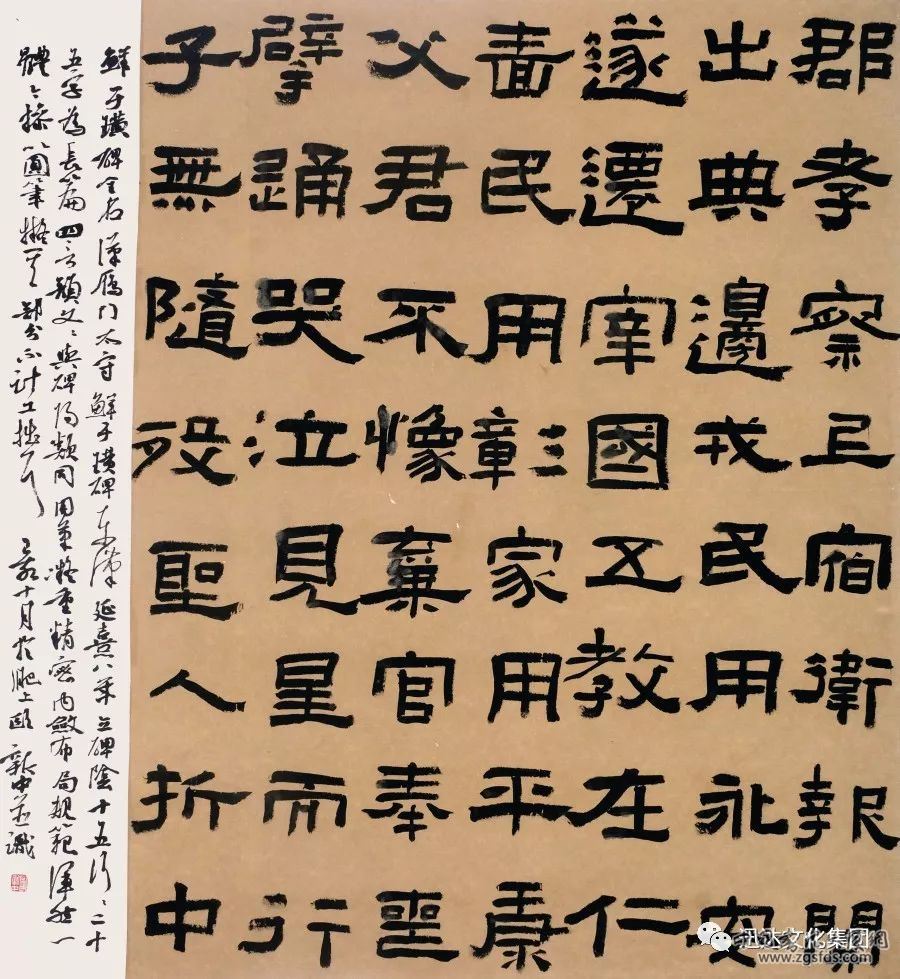 郡孝察宿衛報關
出典邊戎民用永安
遂遷宰國五教在仁
嗇民用彰家用平康
父君不像棄官奉喪
擗踊哭泣見星而行
子無隨歿聖人折中
鮮于璜碑全名漢雁門太守鮮于璜碑東漢延熹八年立碑陰十五行、二十
五字為長篇四言韻文、與碑陽類同用筆凝重精密内斂布局規範渾然一
體今採以圓筆擬其部分不計工拙 十月於肥上歐新中並識
迅达文化集团
www.zgsfds.com